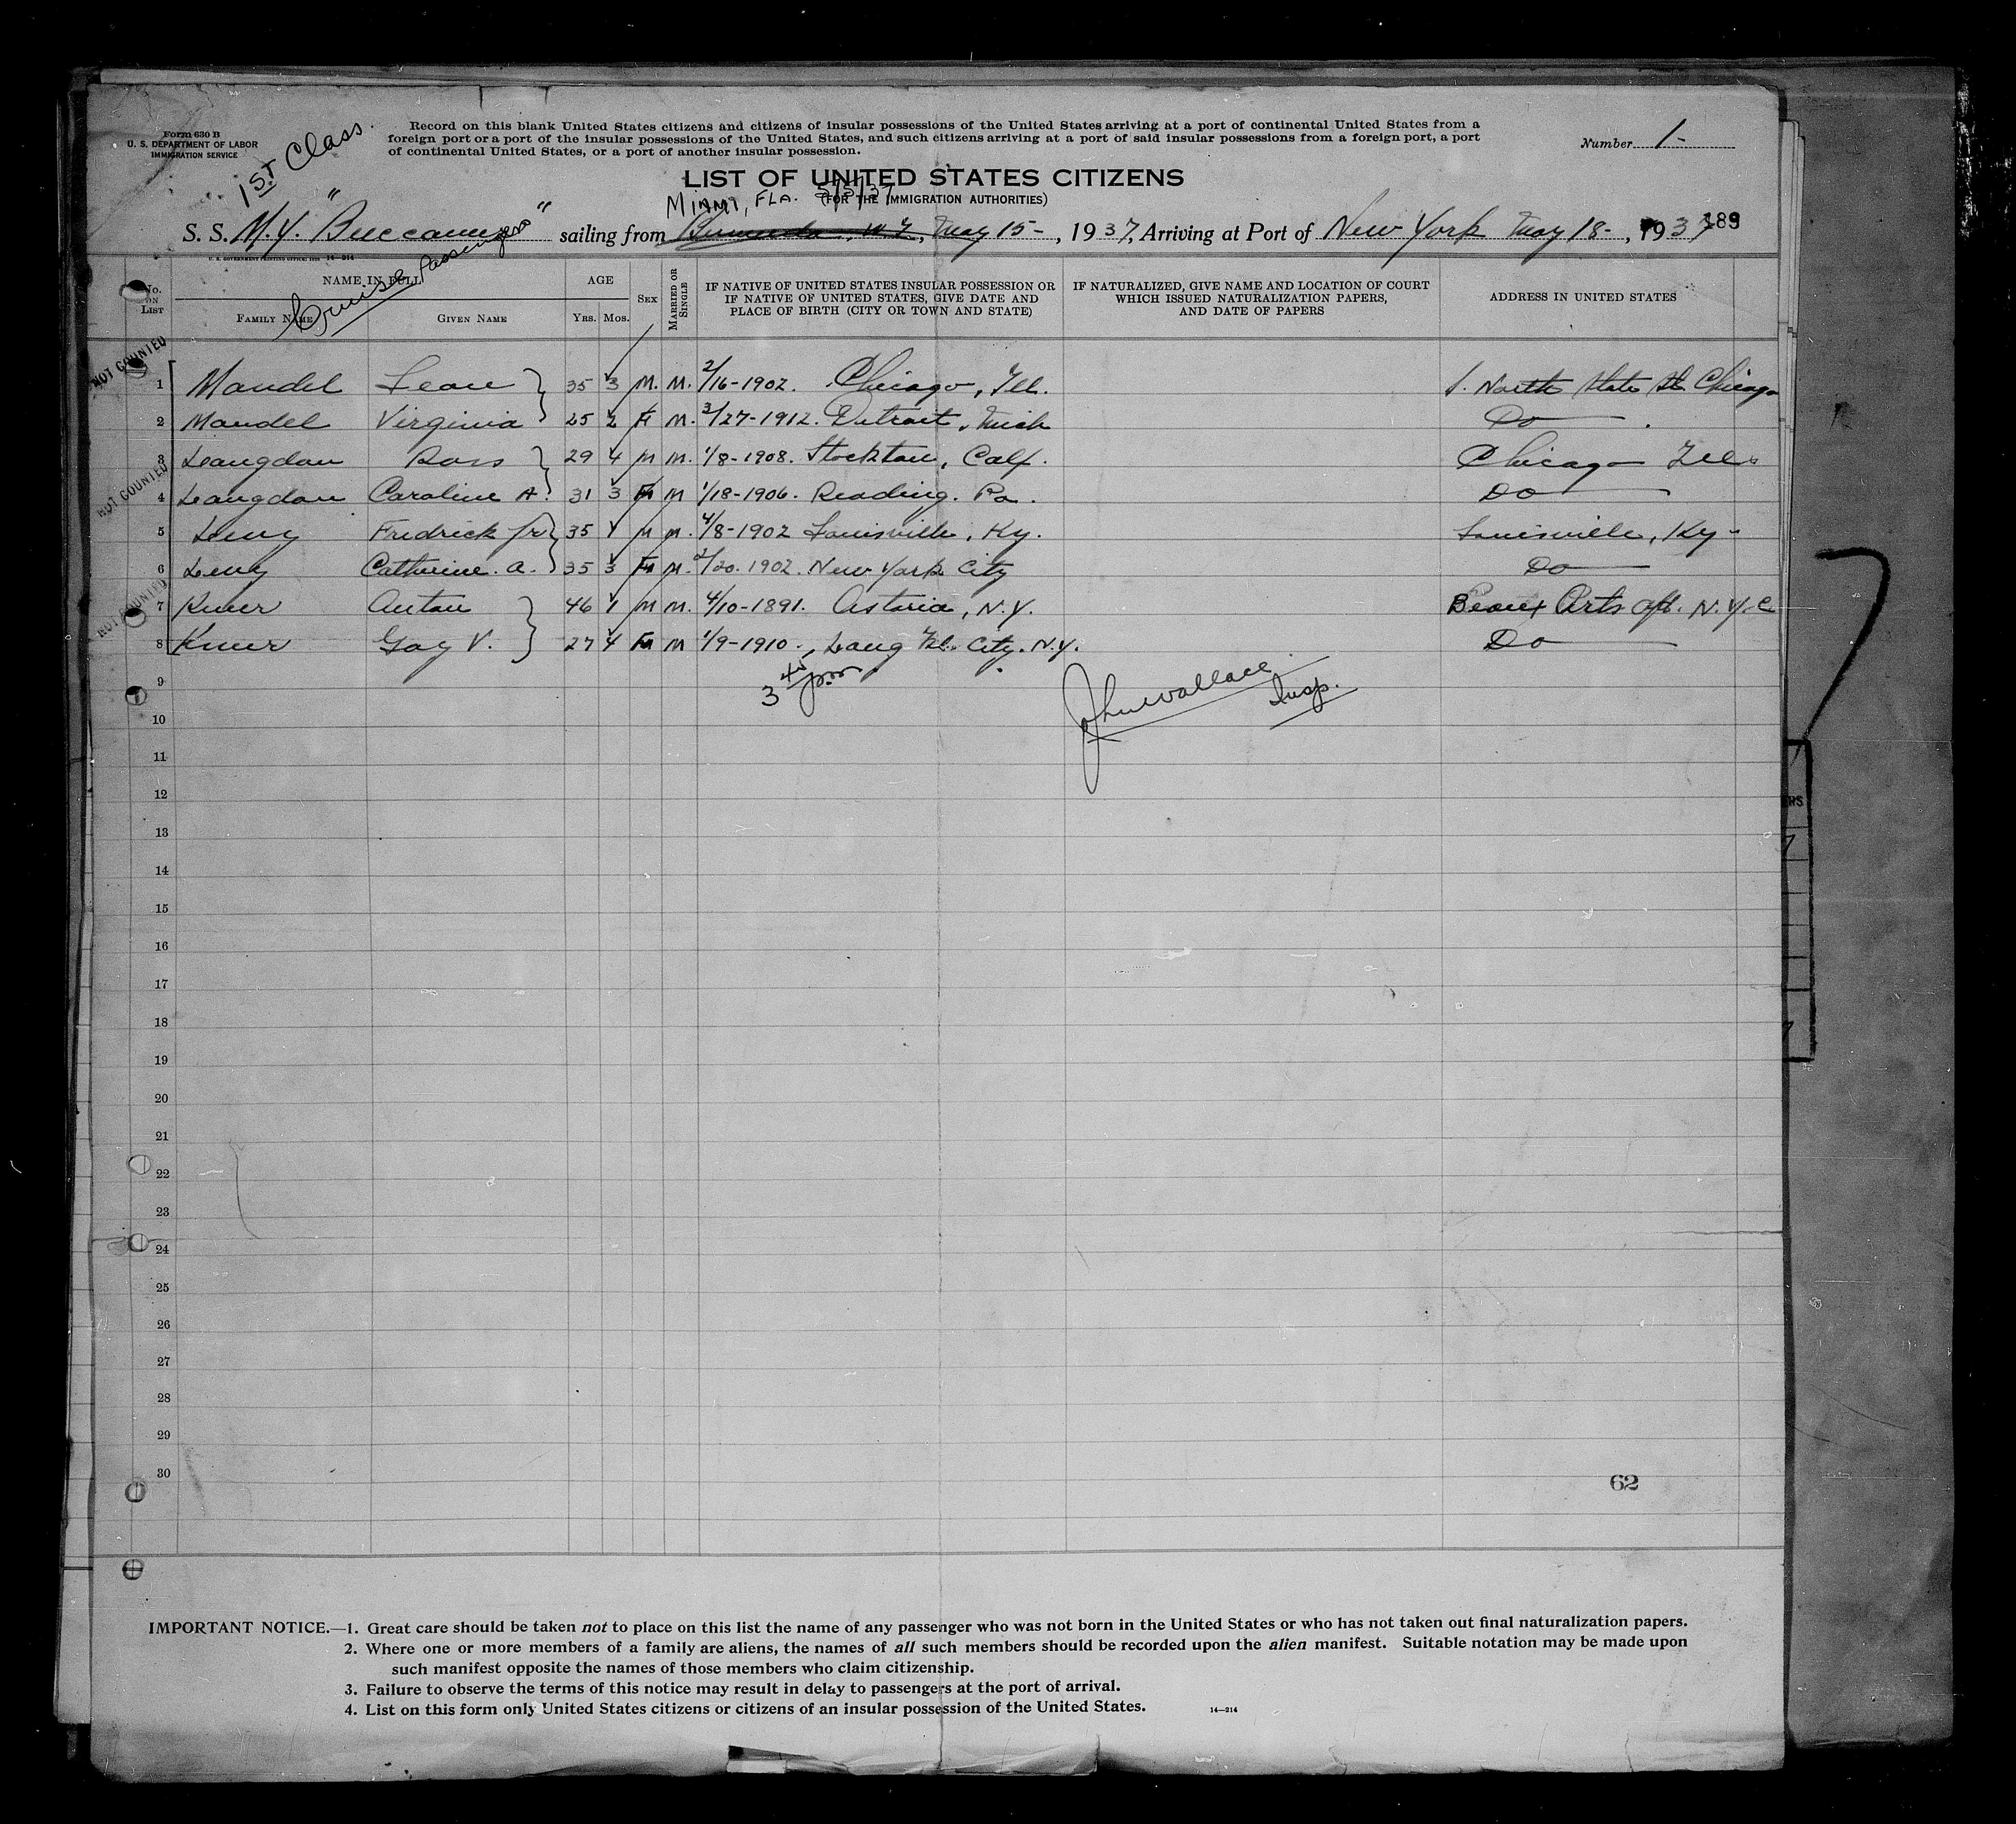 Form 630 B
U. S. DEPARTMENT OF LABOR
IMMIGRATION SERVICE
1ST Class.
Record on this blank United States citizens and citizens of insular possessions of the United States arriving at a port of continental United States from a
foreign port or a port of the insular possessions of the United States, and such citizens arriving at a port of said insular possessions from a foreign port, a port
of continental United States, or a port of another insular possession.
Number 1-
LIST OF UNITED STATES CITIZENS
(FOR THE IMMIGRATION AUTHORITIES)
MIAMI, FLA. 5/5/37
S. S. M.Y. "Buccaneer" sailing from Bermuda, W.I, May 15-, 1937, Arriving at Port of New York May 18-, 1937
189
U. S. GOVERNMENT PRINTING OFFICE: 14—214
Cruise Passengers
No. ON LIST
NAME IN FULL
FAMILY NAME
GIVEN NAME
AGE
YRS. MOS.
SEX
MARRIED OR SINGLE
IF NATIVE OF UNITED STATES INSULAR POSSESSION OR
IF NATIVE OF UNITED STATES, GIVE DATE AND
PLACE OF BIRTH (CITY OR TOWN AND STATE)
IF NATURALIZED, GIVE NAME AND LOCATION OF COURT
WHICH ISSUED NATURALIZATION PAPERS,
AND DATE OF PAPERS
ADDRESS IN UNITED STATES
NOT COUNTED
1 Mandel Leon 35 3 M. M. 2/16-1902. Chicago, Ill. 1. North State St Chicago
2 Mandel Virginia 25 2 F M. 3/27-1912. Detroit, Mich Do
NOT COUNTED
3 Langdon Ross 29 4 M M. 1/8-1908. Stockton, Calf. Chicago Ill
4 Langdon Caroline A. 31 3 F M 1/18-1906. Reading. Pa. Do
5 Levy Fredrick Jr 35 1 M M. 4/8-1902 Louisville, Ky. Louisville, Ky-
6 Levy Catherine. A. 35 3 F M. 2/20. 1902. New York City Do
NOT COUNTED
7 Kner Anton 46 1 M M. 4/10-1891. Astoria, N.Y. Beaux Arts apt. N.Y.C
8 Kner Gay V. 27 4 F M 1/9-1910., Long Isl. City. N.Y. Do
3 40 pm
John Wallace Insp.
9
10
11
12
13
14
15
16
17
18
19
20
21
22
23
24
25
26
27
28
29
30
62
IMPORTANT NOTICE.—1. Great care should be taken not to place on this list the name of any passenger who was not born in the United States or who has not taken out final naturalization papers.
2. Where one or more members of a family are aliens, the names of all such members should be recorded upon the alien manifest. Suitable notation may be made upon
such manifest opposite the names of those members who claim citizenship.
3. Failure to observe the terms of this notice may result in delay to passengers at the port of arrival.
4. List on this form only United States citizens or citizens of an insular possession of the United States.
14—214